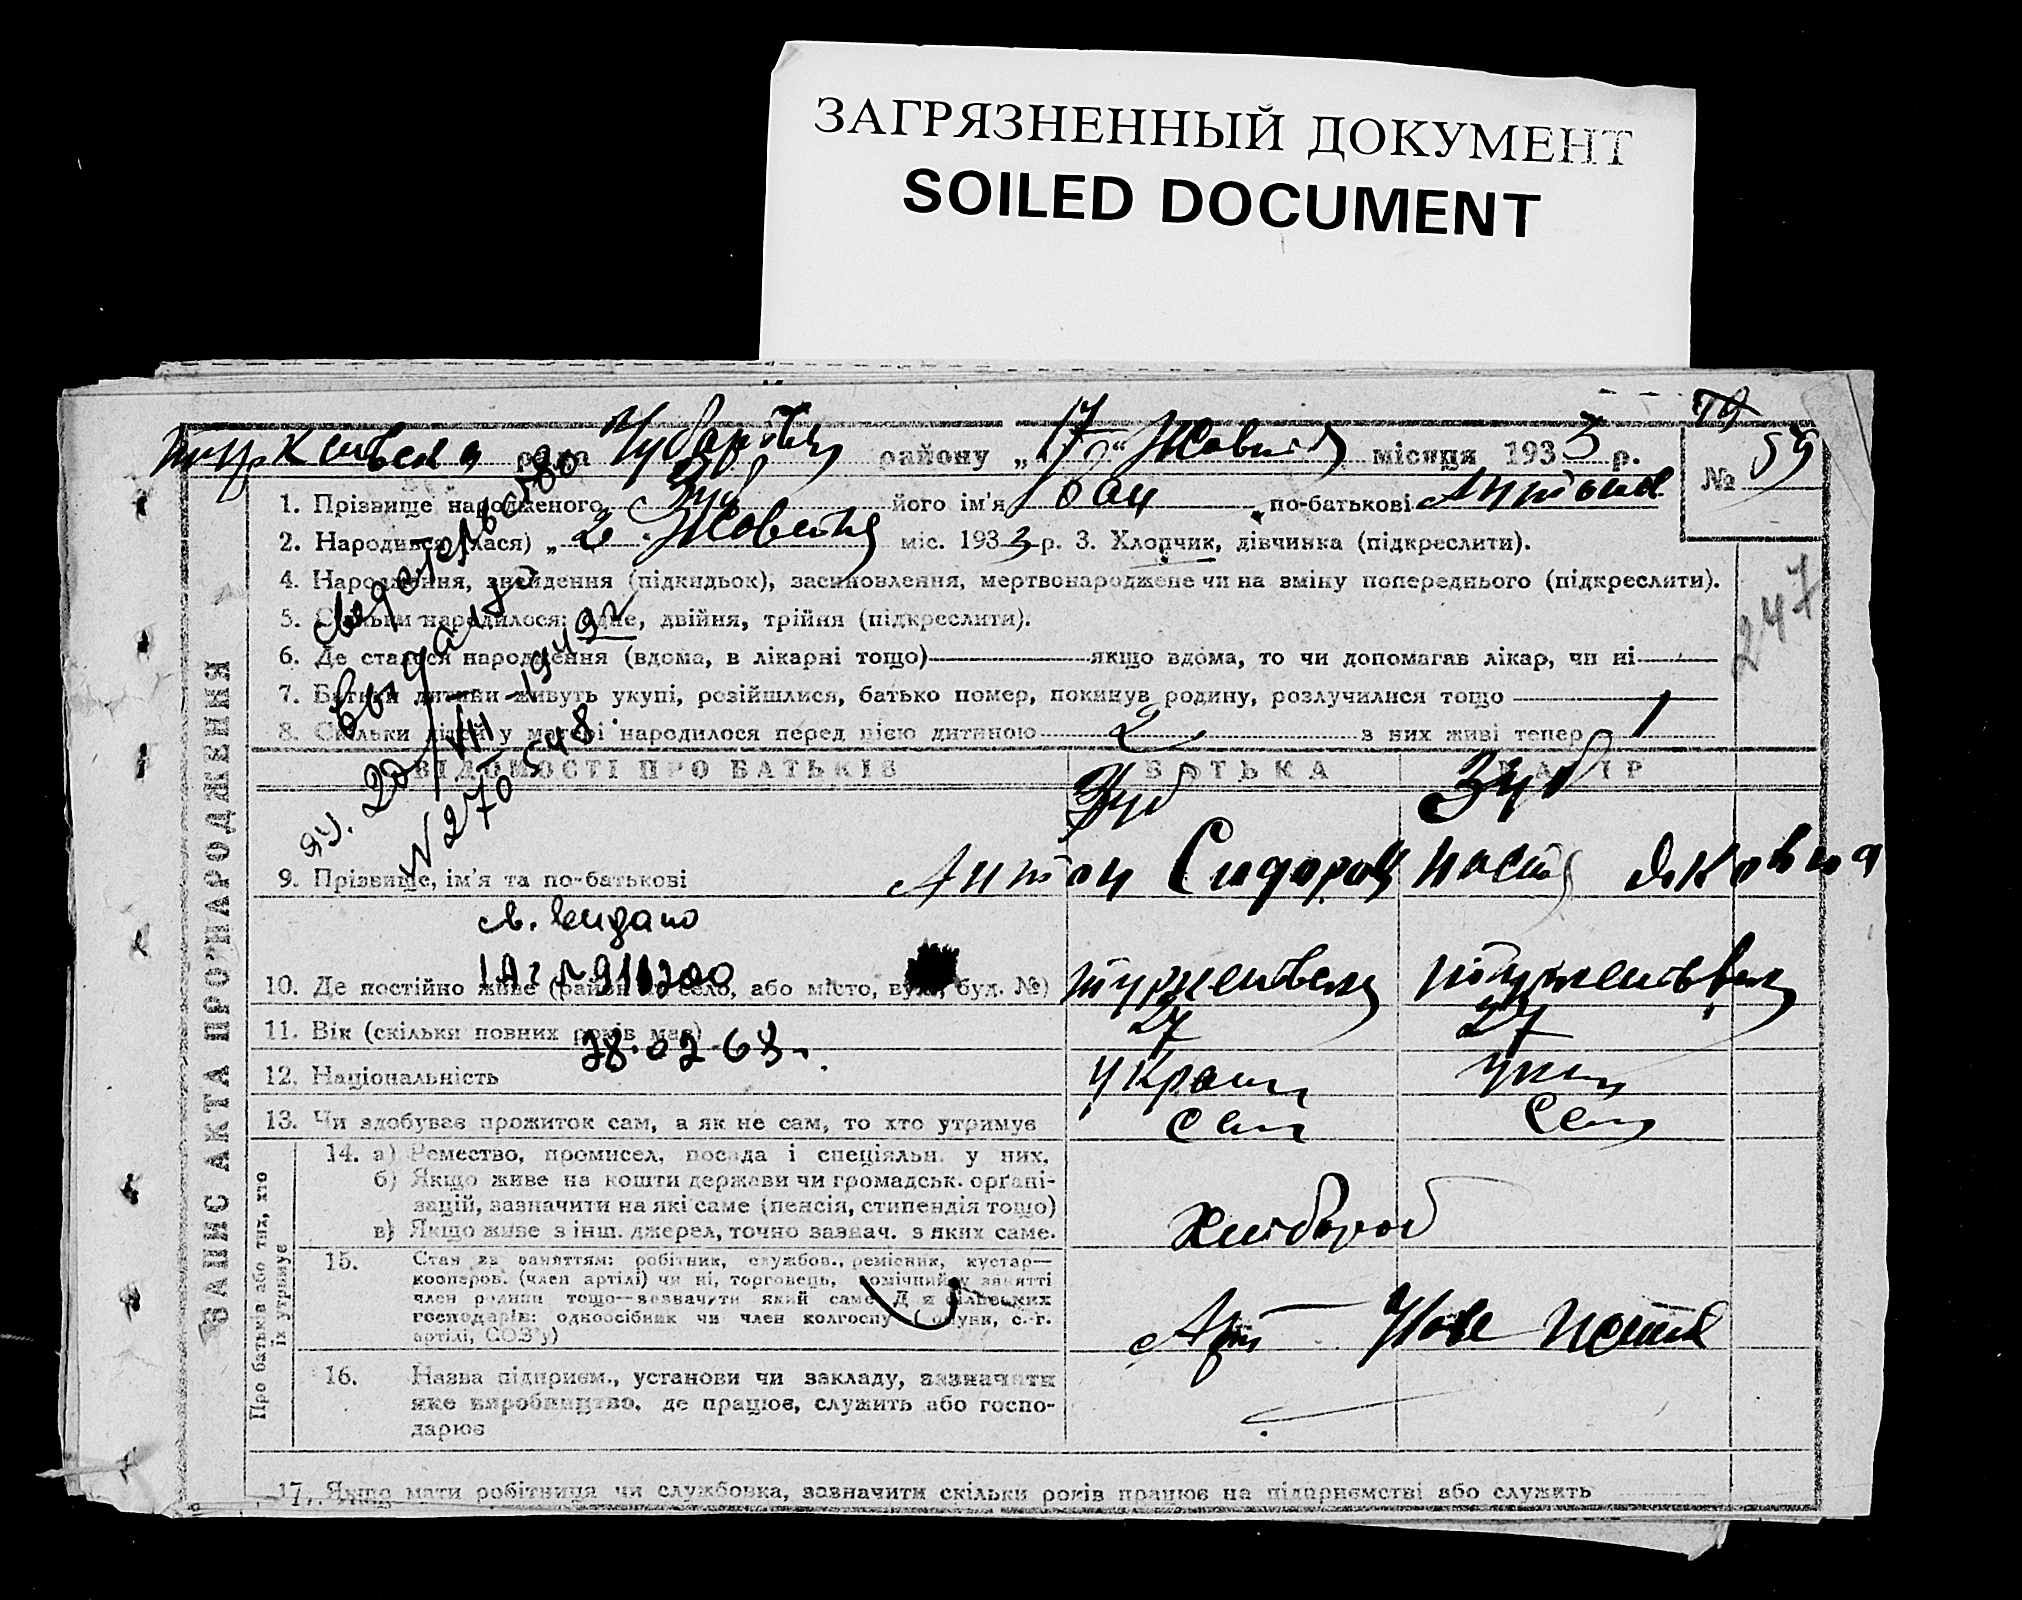 ЗАГРЯЗНЕННЫЙ ДОКУМЕНТ
SOILED DOCUMENT
рада Чубарівка району „17“ Жовтня місяця 1933 р.
№ 59
1. Прізвище народженого Зуб його ім'я Іван по-батькові Антонов
2. Народився (лася) „2 Жовтня міс. 1933 р. 3. Хлопчик, дівчинка (підкреслити).
4. Народження, знайдення (підкидьок), засиновлення, мертвонароджене чи на зміну попереднього (підкреслити).
5. Скільки народилося: одне, двійня, трійня (підкреслити).
6. Де сталося народження (вдома, в лікарні тощо) якщо вдома, то чи допомагав лікар, чи ні
7. Батьки дитини живуть укупі, розійшлися, батько помер, покинув родину, розлучилися тощо
8. Скільки дітей у матері народилося перед цією дитиною 2 з них живі тепер 1
247
Свидетельство
выдано
20/VIII-1949 г
N 270548
ЗАПИС АКТА ПРО НАРОДЖЕННЯ
ВІДОМОСТІ ПРО БАТЬКІВ БАТЬКА МАТІР
Зуб Зуб
9. Прізвище, ім'я та по-батькові Антон Сидоров Настя Яковна
св. видано
10. Де постійно живе (район і село, або місто, вул., буд. №)
11. Вік (скільки повних років має) 27 27
28.02.68.
12. Національність Україн Укр
13. Чи здобуває прожиток сам, а як не сам, то хто утримує Сам Сам
Про батьків або тих, хто їх утримує
14. а) Ремество, промисел, посада і спеціяльн. у них.
б) Якщо живе на кошти держави чи громадськ. орґані-
зацій, зазначити на які саме (пенсія, стипендія тощо)
в) Якщо живе з інш. джерел, точно зазнач. з яких саме.
Хлібороб
15. Стан за заняттям: робітник, службов., ремісник, кустар—
кооперов. (член артілі) чи ні, торговець, помічний у занятті
член родини тощо—зазначити який саме. Для сільських
господарів: одноосібник чи член колгоспу (комуни, с.-г.
артілі, СОЗ'у)
Арт Нове
16. Назва підприєм., установи чи закладу, зазначити
яке виробництво, де працює, служить або госпо-
дарює
17. Якщо мати робітниця чи службовка, зазначити скільки років працює на підприємстві або служить